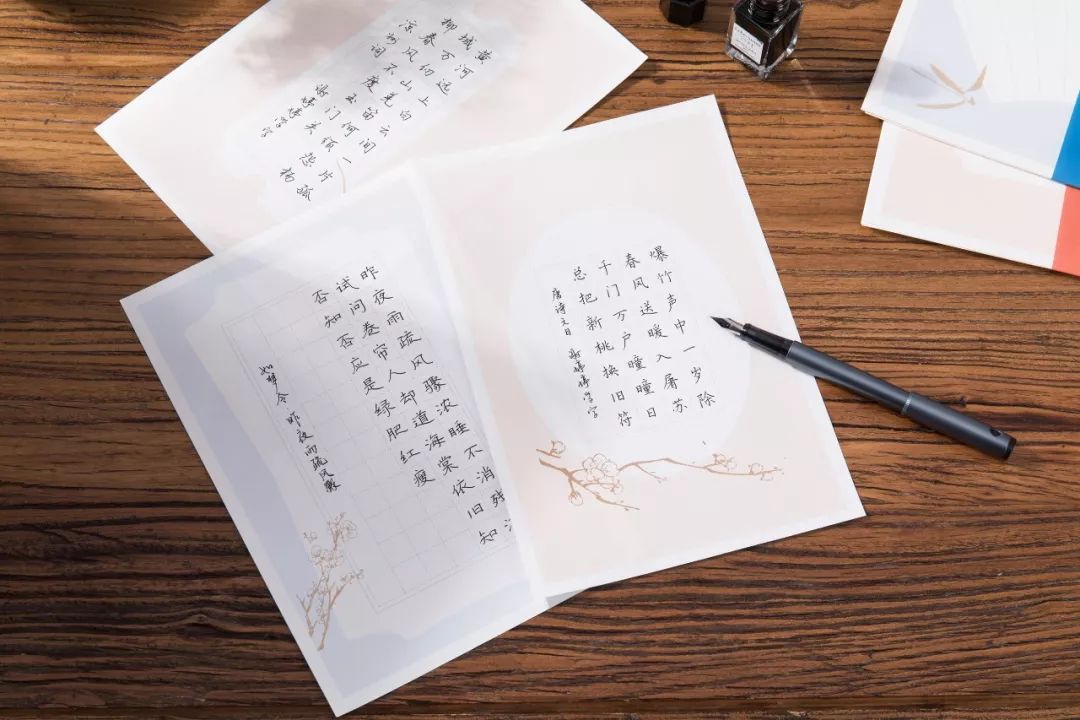 黄河远上白云间一片孤
城万仞山羌笛何须怨杨
柳春风不度玉门关
凉州词
昨夜雨疏风骤浓睡不消残
试问卷帘人却道海棠依旧知
否知否应是绿肥红瘦
如梦令 昨夜雨疏风骤
爆竹声中一岁除
春风送暖入屠苏
千门万户瞳瞳日
总把新桃换旧符
唐诗元日